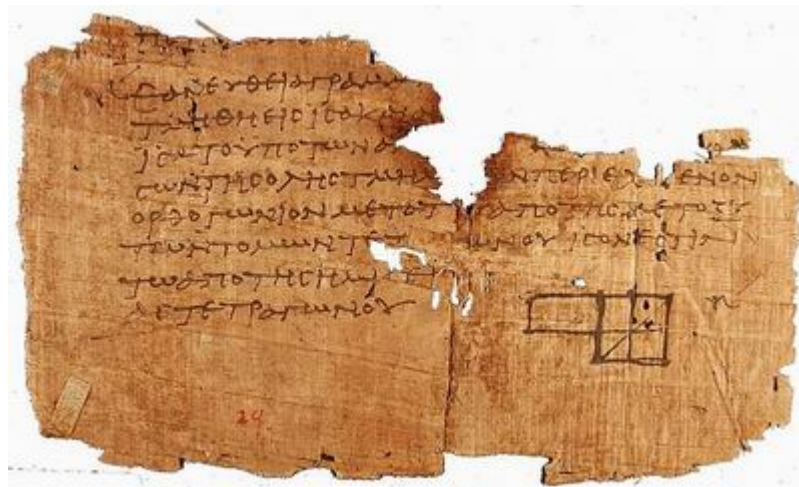 ΕΑΝ ΕΥΘΕΙΑ ΓΡΑΜΜ
ΤΜΗΘΗ ΕΙΣ ΙΣΑ ΚΑΙ
ΙΣΑ ΤΟ ΥΠΟ ΤΩΝ Α
ΣΩΝ ΤΗΣ ΟΛΗΣ ΤΜΗΜ ΩΝ ΠΕΡΙΕΧΟΜΕΝΟΝ
ΟΡΘΟΓΩΝΙΟΝ ΜΕΤΑ Τ Υ ΑΠΟ ΤΗΣ ΜΕΤΟΞΥ
ΤΩΝ ΤΟΜΩΝ ΤΕΤ ΩΝΟΥ ΙΣΟΝ ΕΣΤΙΝ
ΤΩ ΑΠΟ ΤΗΣ ΗΜΙΣΕΙ
ΑΣ ΤΕΤΡΑΓΩΝΟΥ
24